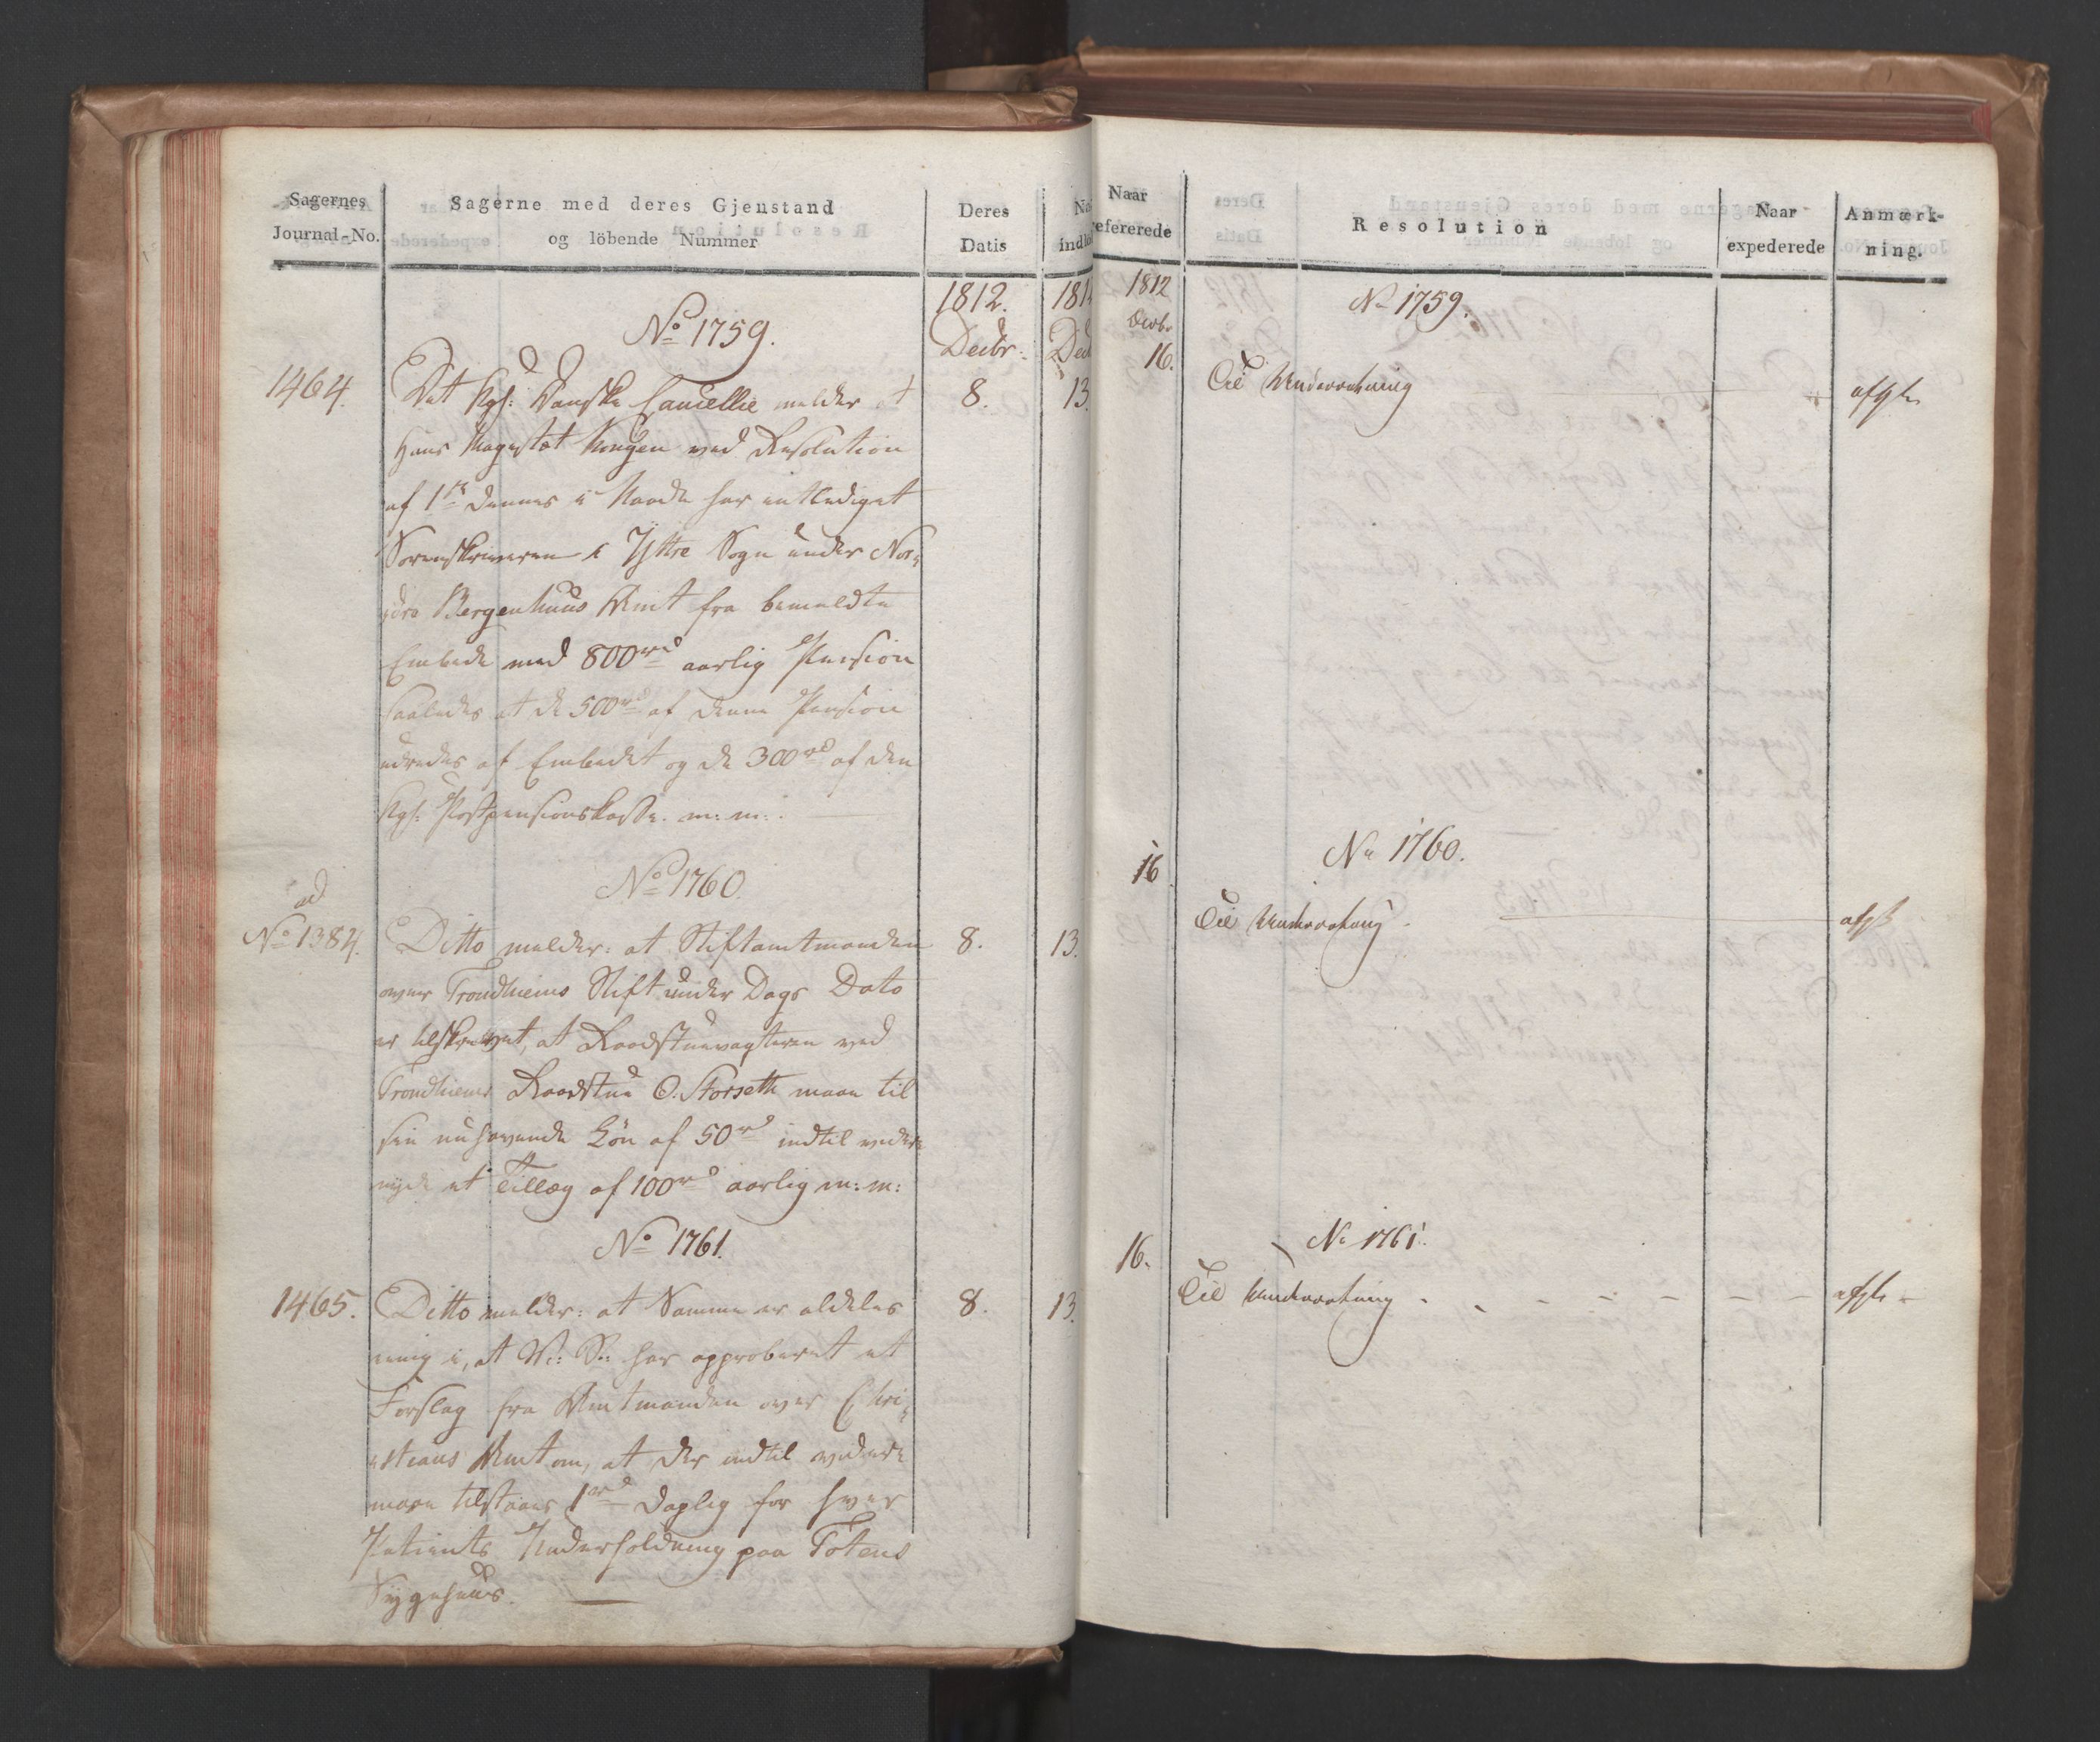 Sagernes
Journal-No.
Sagerne med deres Gjenstand
og löbende Nummer
Deres
Datis
1812.
Decbr:
No 1759.
1464.
Det Kgl: Danske Cancellie melder at
8.
13.
Hans Magestæt Kongen ved Resolution
af 1te dennes i Naade har entlediget
Sorenskriveren i Yttre Sogn under Nor-
dre Bergenhuus Amt fra bemeldte
Embede med 800rd aarlig Pension
saaledes at de 500rd af denne Pension
udredes af Embedet og de 300rd af den
Kgl: Postpensionskasse. m: m:
No 1760.
ad
No 1384.
Ditto melder: at Stiftamtmanden
8.
13.
over Trondhiems Stift under Dags Dato
er tilskrevet, at Raadstuevagteren ved
Trondhiems Raadstue O. Storseth maae til
sin nuhavende Lön af 50rd indtil videre
nyde et Tillæg af 100rd aarlig m: m:
No 1761.
1465.
Ditto melder: at Samme er aldeles
8.
13.
enig i, at V: S: har approberet et
Forslag fra Amtmanden over Chri-
stians Amt om, at der indtil videre
maae tilstaaes 1rd Daglig for hver
Patients Underholdning paa Totens
Sygehuus.
Naar
refererede
Resolution
Naar
expederede
Anmærk-
ning.
1812
Decbr
16.
No 1759.
Til Underretning
afgh
16
No 1760.
Til Underretning.
16.
No 1761.
Til Underretning